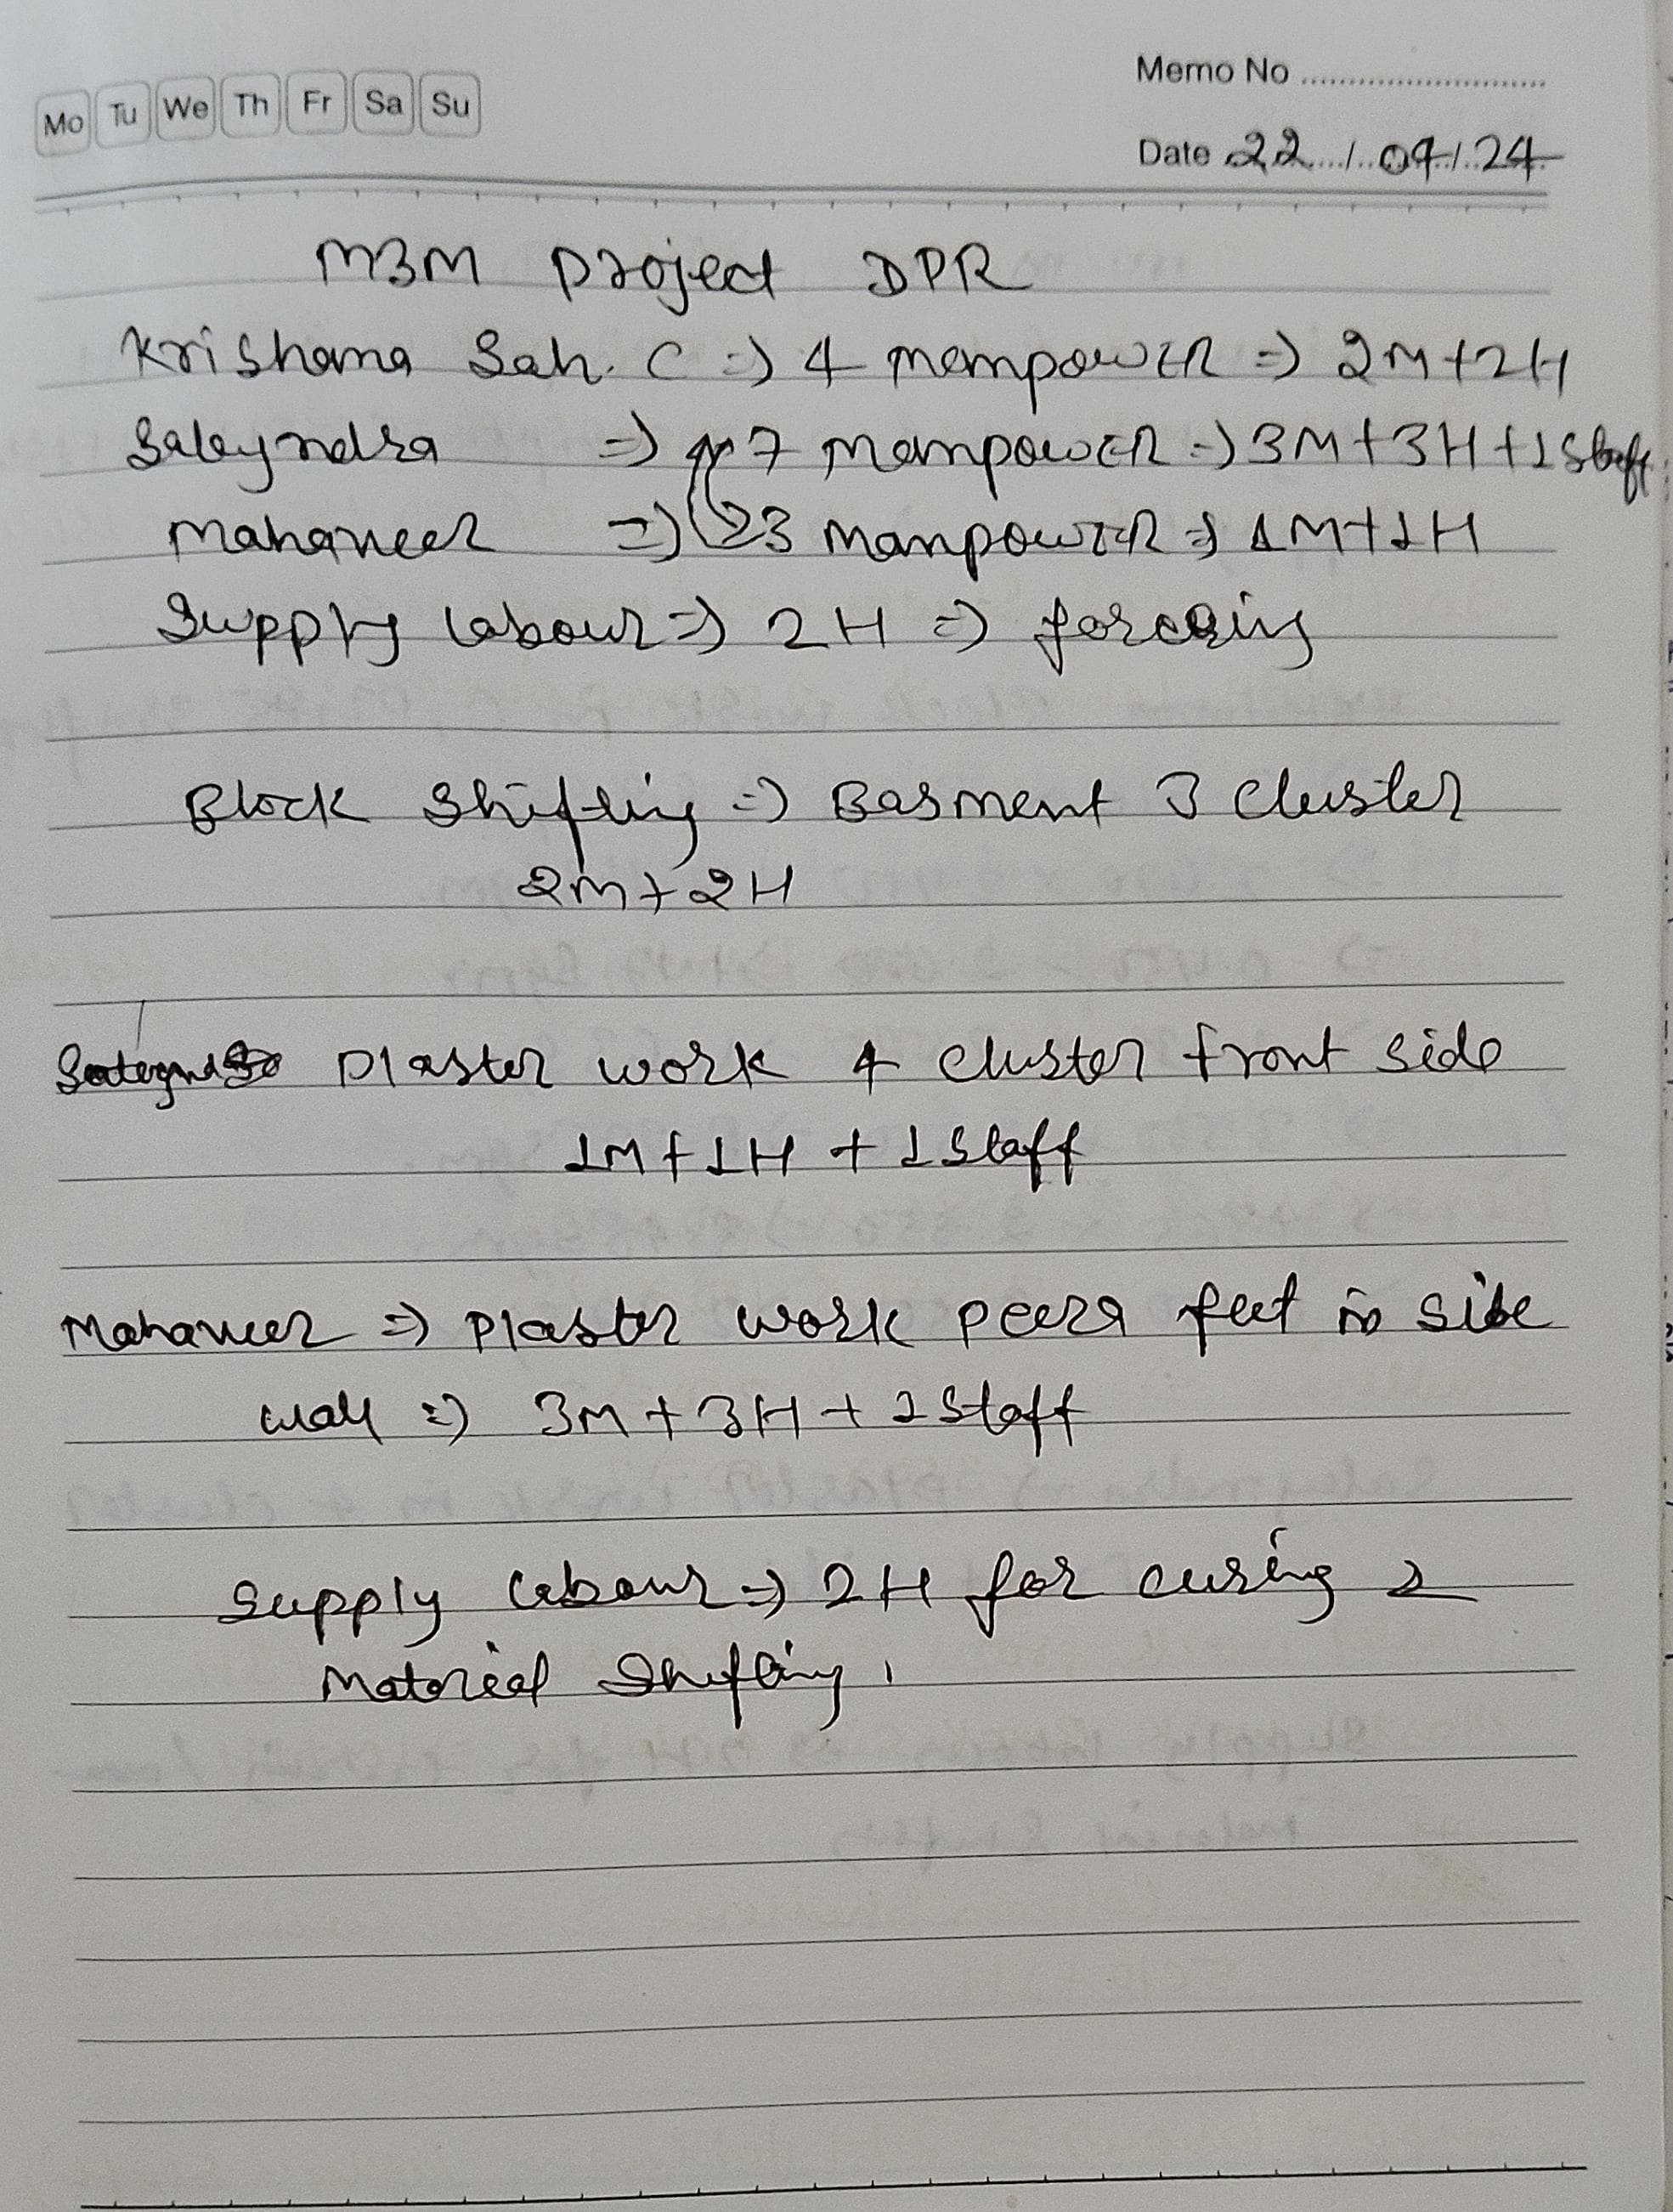 Mo Tu We Th Fr Sa Su
Memo No
Date 22/04/24
M3M Project DPR
Krishana Sah. C => 4 manpower => 2M+2H
Sateyndra => 7 manpower => 3M+3H+1 Staff
Mahaveer => 3 manpower => 1M+1H
Supply labour => 2H =>
Block Shifting => Basment 3 Cluster
2M+2H
Plaster work 4 cluster front side
1M+1H + 1 Staff
Mahaveer => Plaster work feet in side
wall => 3M+3H+1 Staff
Supply labour => 2H for curing &
Material Shifting.